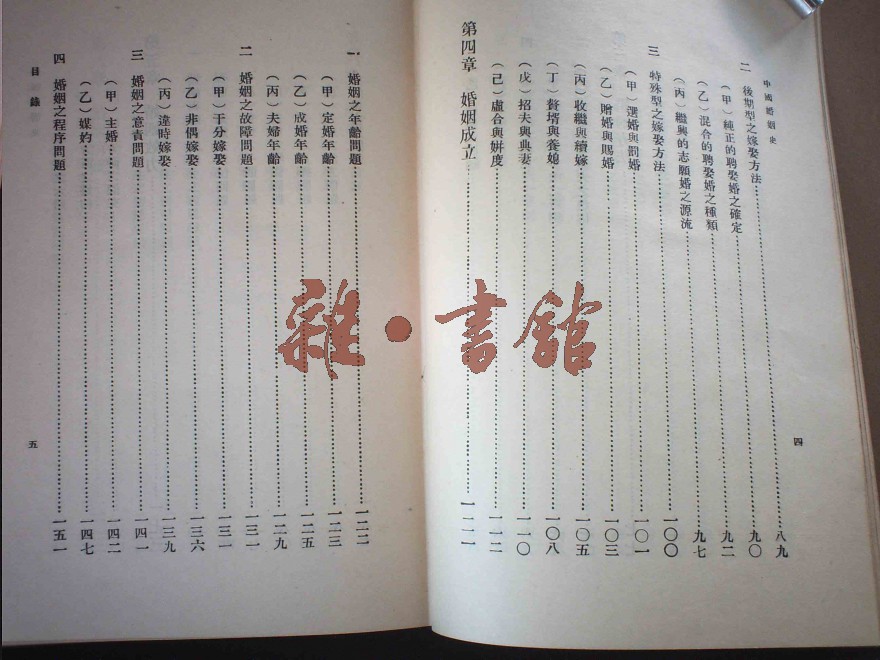 中國婚姻史
四
二 後期型之嫁娶方法……八九
（甲）純正的聘娶婚之確定……九〇
（乙）混合的聘娶婚之種類……九二
（丙）繼興的志願婚之源流……九七
三 特殊型之嫁娶方法……一〇〇
（甲）選婚與罰婚……一〇一
（乙）贈婚與賜婚……一〇三
（丙）收繼與續嫁……一〇五
（丁）贅壻與養媳……一〇八
（戊）招夫與典妻……一一〇
（己）虛合與姘度……一一二
第四章 婚姻成立……一二一
一 婚姻之年齡問題……一二二
（甲）定婚年齡……一二三
（乙）成婚年齡……一二五
（丙）夫婦年齡……一二九
二 婚姻之故障問題……一三一
（甲）干分嫁娶……一三一
（乙）非偶嫁娶……一三六
（丙）違時嫁娶……一三九
三 婚姻之意責問題……一四一
（甲）主婚……一四二
（乙）媒妁……一四七
四 婚姻之程序問題……一五一
目錄
五
雜·書館